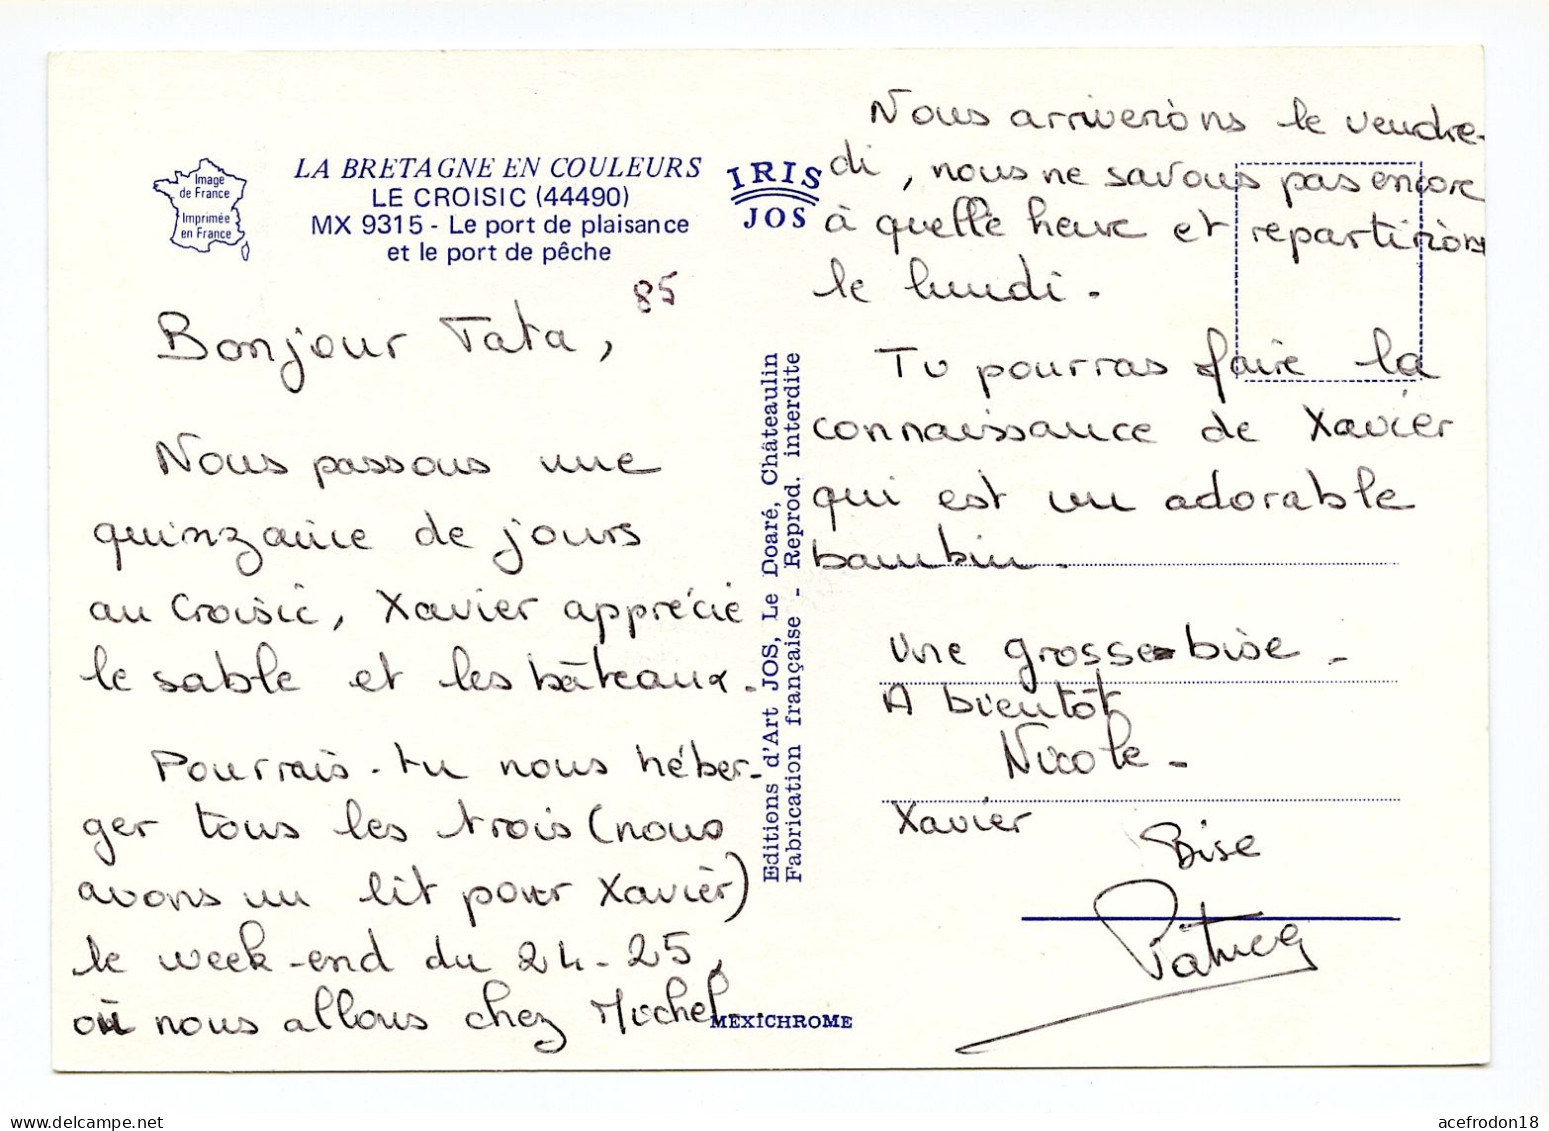 Image
de France
Imprimée
en France
LA BRETAGNE EN COULEURS
LE CROISIC (44490)
MX 9315 - Le port de plaisance
et le port de pêche
IRIS
JOS
85
Bonjour Tata,
Nous passons une
quinzaine de jours
au Croisic, Xavier apprécie
le sable et les bâteaux.
Pourrais-tu nous héber-
ger tous les trois (nous
avons un lit pour Xavier)
le week-end du 24-25,
où nous allons chez Michel.
Editions d'Art JOS, Le Doaré, Châteaulin
Fabrication française - Reprod. interdite
MEXICHROME
Nous arriverons le vendre-
di, nous ne savons pas encore
à quelle heure et repartirons
le lundi.
Tu pourras faire la
connaissance de Xavier
qui est un adorable
bambin.
Une grosse bise -
A bientôt
Nicole -
Xavier
Bise
acefrodon18